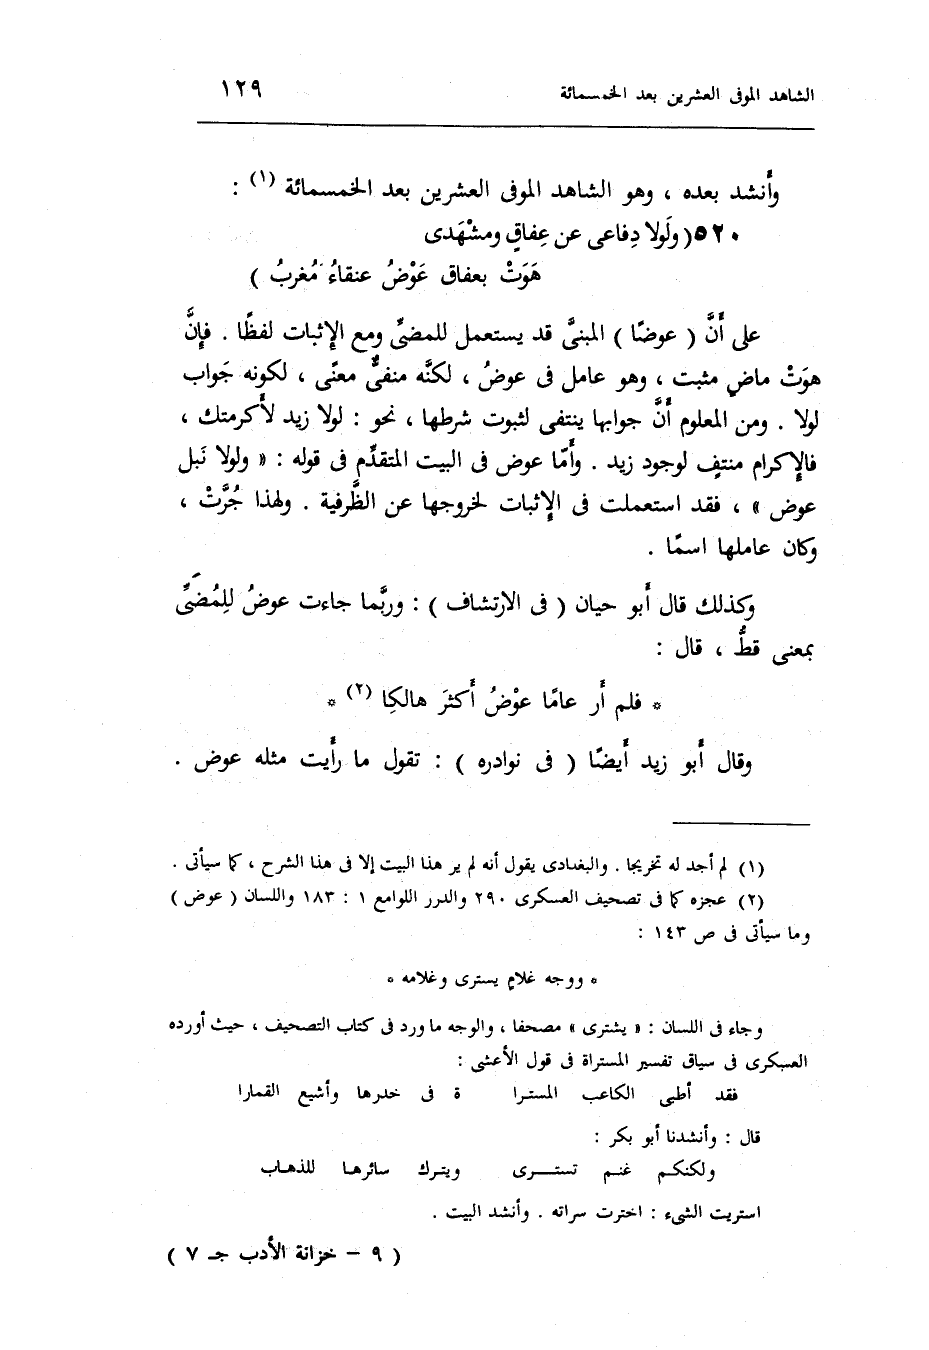 الشاهد الموفى العشرين بعد الخمسمائة ١٢٩
وأَنشد بعده ، وهو الشاهد الموفى العشرين بعد الخمسمائة (١) :
٥٢٠( ولَولا دِفاعى عن عِفاقٍ ومشْهَدى
هَوَتْ بعفاق عَوْضُ عنقاءُ مُغربُ )
على أَنَّ ( عوضًا ) المبنىَّ قد يستعمل للمضىِّ ومع الإِثبات لفظًا . فإِنَّ
هوَتْ ماضٍ مثبت ، وهو عامل فى عوضُ ، لكنَّه منفىٌّ معنًى ، لكونه جَواب
لولا . ومن المعلوم أَنَّ جوابها ينتفى لثبوت شرطها ، نحو : لولا زيد لأَكرمتك ،
فالإِكرام منتفٍ لوجود زيد . وأَمّا عوض فى البيت المتقدِّم فى قوله : « ولولا نَبل
عوض » ، فقد استعملت فى الإِثبات لخروجها عن الظَّرفية . ولهذا جُرَّتْ ،
وكان عاملها اسمًا .
وكذلك قال أَبو حيان ( فى الارتشاف ) : وربَّما جاءت عوضُ للمُضَىِّ
بمعنى قطُّ ، قال :
* فلم أَر عامًا عوْضُ أَكثرَ هالكِا (٢) *
وقال أَبو زيد أَيضًا ( فى نوادره ) : تقول ما رأَيت مثله عوض .
(١) لم أجد له تخريجا . والبغدادى يقول أنه لم ير هذا البيت إلا فى هذا الشرح ، كما سيأتى .
(٢) عجزه كما فى تصحيف العسكرى ٢٩٠ والدرر اللوامع ١ : ١٨٣ واللسان ( عوض )
وما سيأتى فى ص ١٤٣ :
* ووجه غلامٍ يسترى وغلامه *
وجاء فى اللسان : « يشترى » مصحفا ، والوجه ما ورد فى كتاب التصحيف ، حيث أورده
العسكرى فى سياق تفسير المستراة فى قول الأعشى :
فقد أطبى الكاعب المسترا ة فى خدرها وأشيع القمارا
قال : وأنشدنا أبو بكر :
ولكنكم غنم تسترى ويترك سائرها للذهاب
استريت الشىء : اخترت سراته . وأنشد البيت .
( ٩ – خزانة الأدب جـ ٧ )